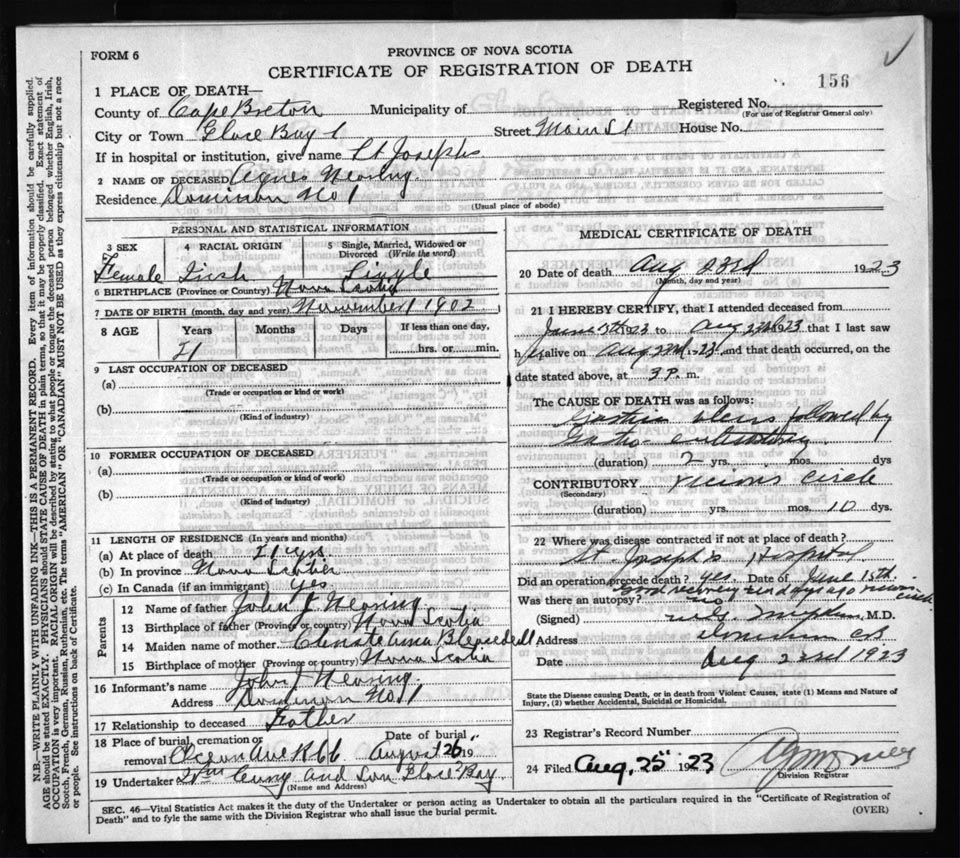 FORM 6
PROVINCE OF NOVA SCOTIA
CERTIFICATE OF REGISTRATION OF DEATH
156
1 PLACE OF DEATH—
County of Cape Breton Municipality of Registered No.
(For use of Registrar General only)
City or Town Glace Bay Street Main St House No.
If in hospital or institution, give name St Josephs
2 NAME OF DECEASED Agnes Nearing
Residence Dominion No 1
(Usual place of abode)
PERSONAL AND STATISTICAL INFORMATION
3 SEX 4 RACIAL ORIGIN 5 Single, Married, Widowed or Divorced (Write the word)
Female Irish Single
6 BIRTHPLACE (Province or Country) Nova Scotia
7 DATE OF BIRTH (month, day and year) November 1 1902
8 AGE Years Months Days If less than one day,
21 hrs. or min.
9 LAST OCCUPATION OF DECEASED
(a)
(Trade or occupation or kind or work)
(b)
(Kind of industry)
10 FORMER OCCUPATION OF DECEASED
(a)
(Trade or occupation or kind of work)
(b)
(Kind of industry)
11 LENGTH OF RESIDENCE (In years and months)
(a) At place of death 21 yrs
(b) In province Nova Scotia
(c) In Canada (if an immigrant) Yes
Parents
12 Name of father John J Nearing
13 Birthplace of father (Province or country) Nova Scotia
14 Maiden name of mother
15 Birthplace of mother (Province or country) Nova Scotia
16 Informant's name John J Nearing
Address Dominion No 1
17 Relationship to deceased Father
18 Place of burial, cremation or removal Date of burial
Ocean Ave August 26 19
19 Undertaker and Son Glace Bay
(Name and Address)
MEDICAL CERTIFICATE OF DEATH
20 Date of death Aug 23rd 1923
(Month, day and year)
21 I HEREBY CERTIFY, that I attended deceased from
June 15th 23 to Aug 23rd 1923 that I last saw
her alive on Aug 23rd 1923, and that death occurred, on the
date stated above, at 3 P. m.
The CAUSE OF DEATH was as follows:
ulcers followed by
Gastro-
(duration) 2 yrs. mos. dys
CONTRIBUTORY Vicious circle
(Secondary)
(duration) yrs. mos. 10 dys.
22 Where was disease contracted if not at place of death?
St. Joseph's Hospital
Did an operation precede death? yes. Date of June 15th.
Good recovery until days ago circle
Was there an autopsy? no
(Signed) M.D.
Address Dominion C B
Date Aug 23rd 1923
State the Disease causing Death, or in death from Violent Causes, state (1) Means and Nature of
Injury, (2) whether Accidental, Suicidal or Homicidal.
23 Registrar's Record Number
24 Filed Aug, 25" 1923
Division Registrar
SEC. 46—Vital Statistics Act makes it the duty of the Undertaker or person acting as Undertaker to obtain all the particulars required in the "Certificate of Registration of
Death" and to fyle the same with the Division Registrar who shall issue the burial permit.
(OVER)
N.B.—WRITE PLAINLY WITH UNFADING INK—THIS IS A PERMANENT RECORD. Every item of information should be carefully supplied.
AGE should be stated EXACTLY. PHYSICIANS should STATE CAUSE OF DEATH in plain terms, so that it may be properly classified. Exact statement of
OCCUPATION is very important. RACIAL ORIGIN will be described by stating to what people or tongue the deceased person belonged whether English, Irish,
Scotch, French, German, Russian, Ruthenian, etc. The terms "AMERICAN" OR "CANADIAN" MUST NOT BE USED as they express citizenship but not a race
or people. See instructions on back of Certificate.